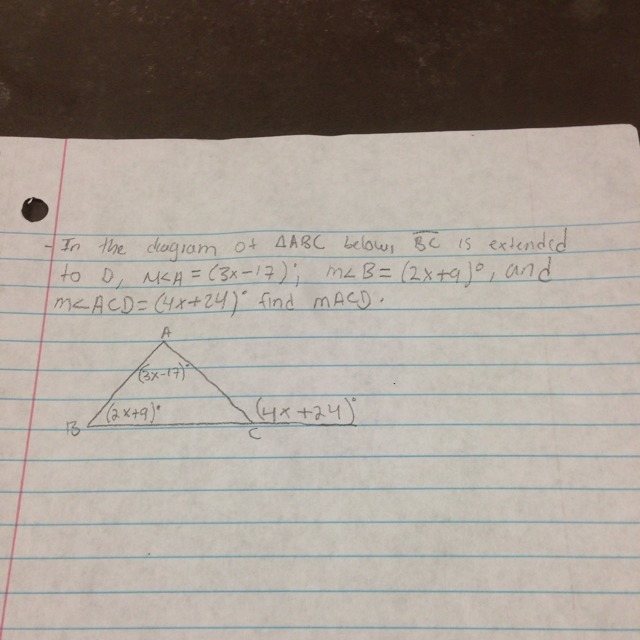 - In the diagram of △ABC below, B̅C̅ is extended
to D, m<A = (3x-17)°, m<B = (2x+9)°, and
m<ACD = (4x+24)° find mACD.
A
(3x-17)°
(2x+9)° (4x+24)°
B C